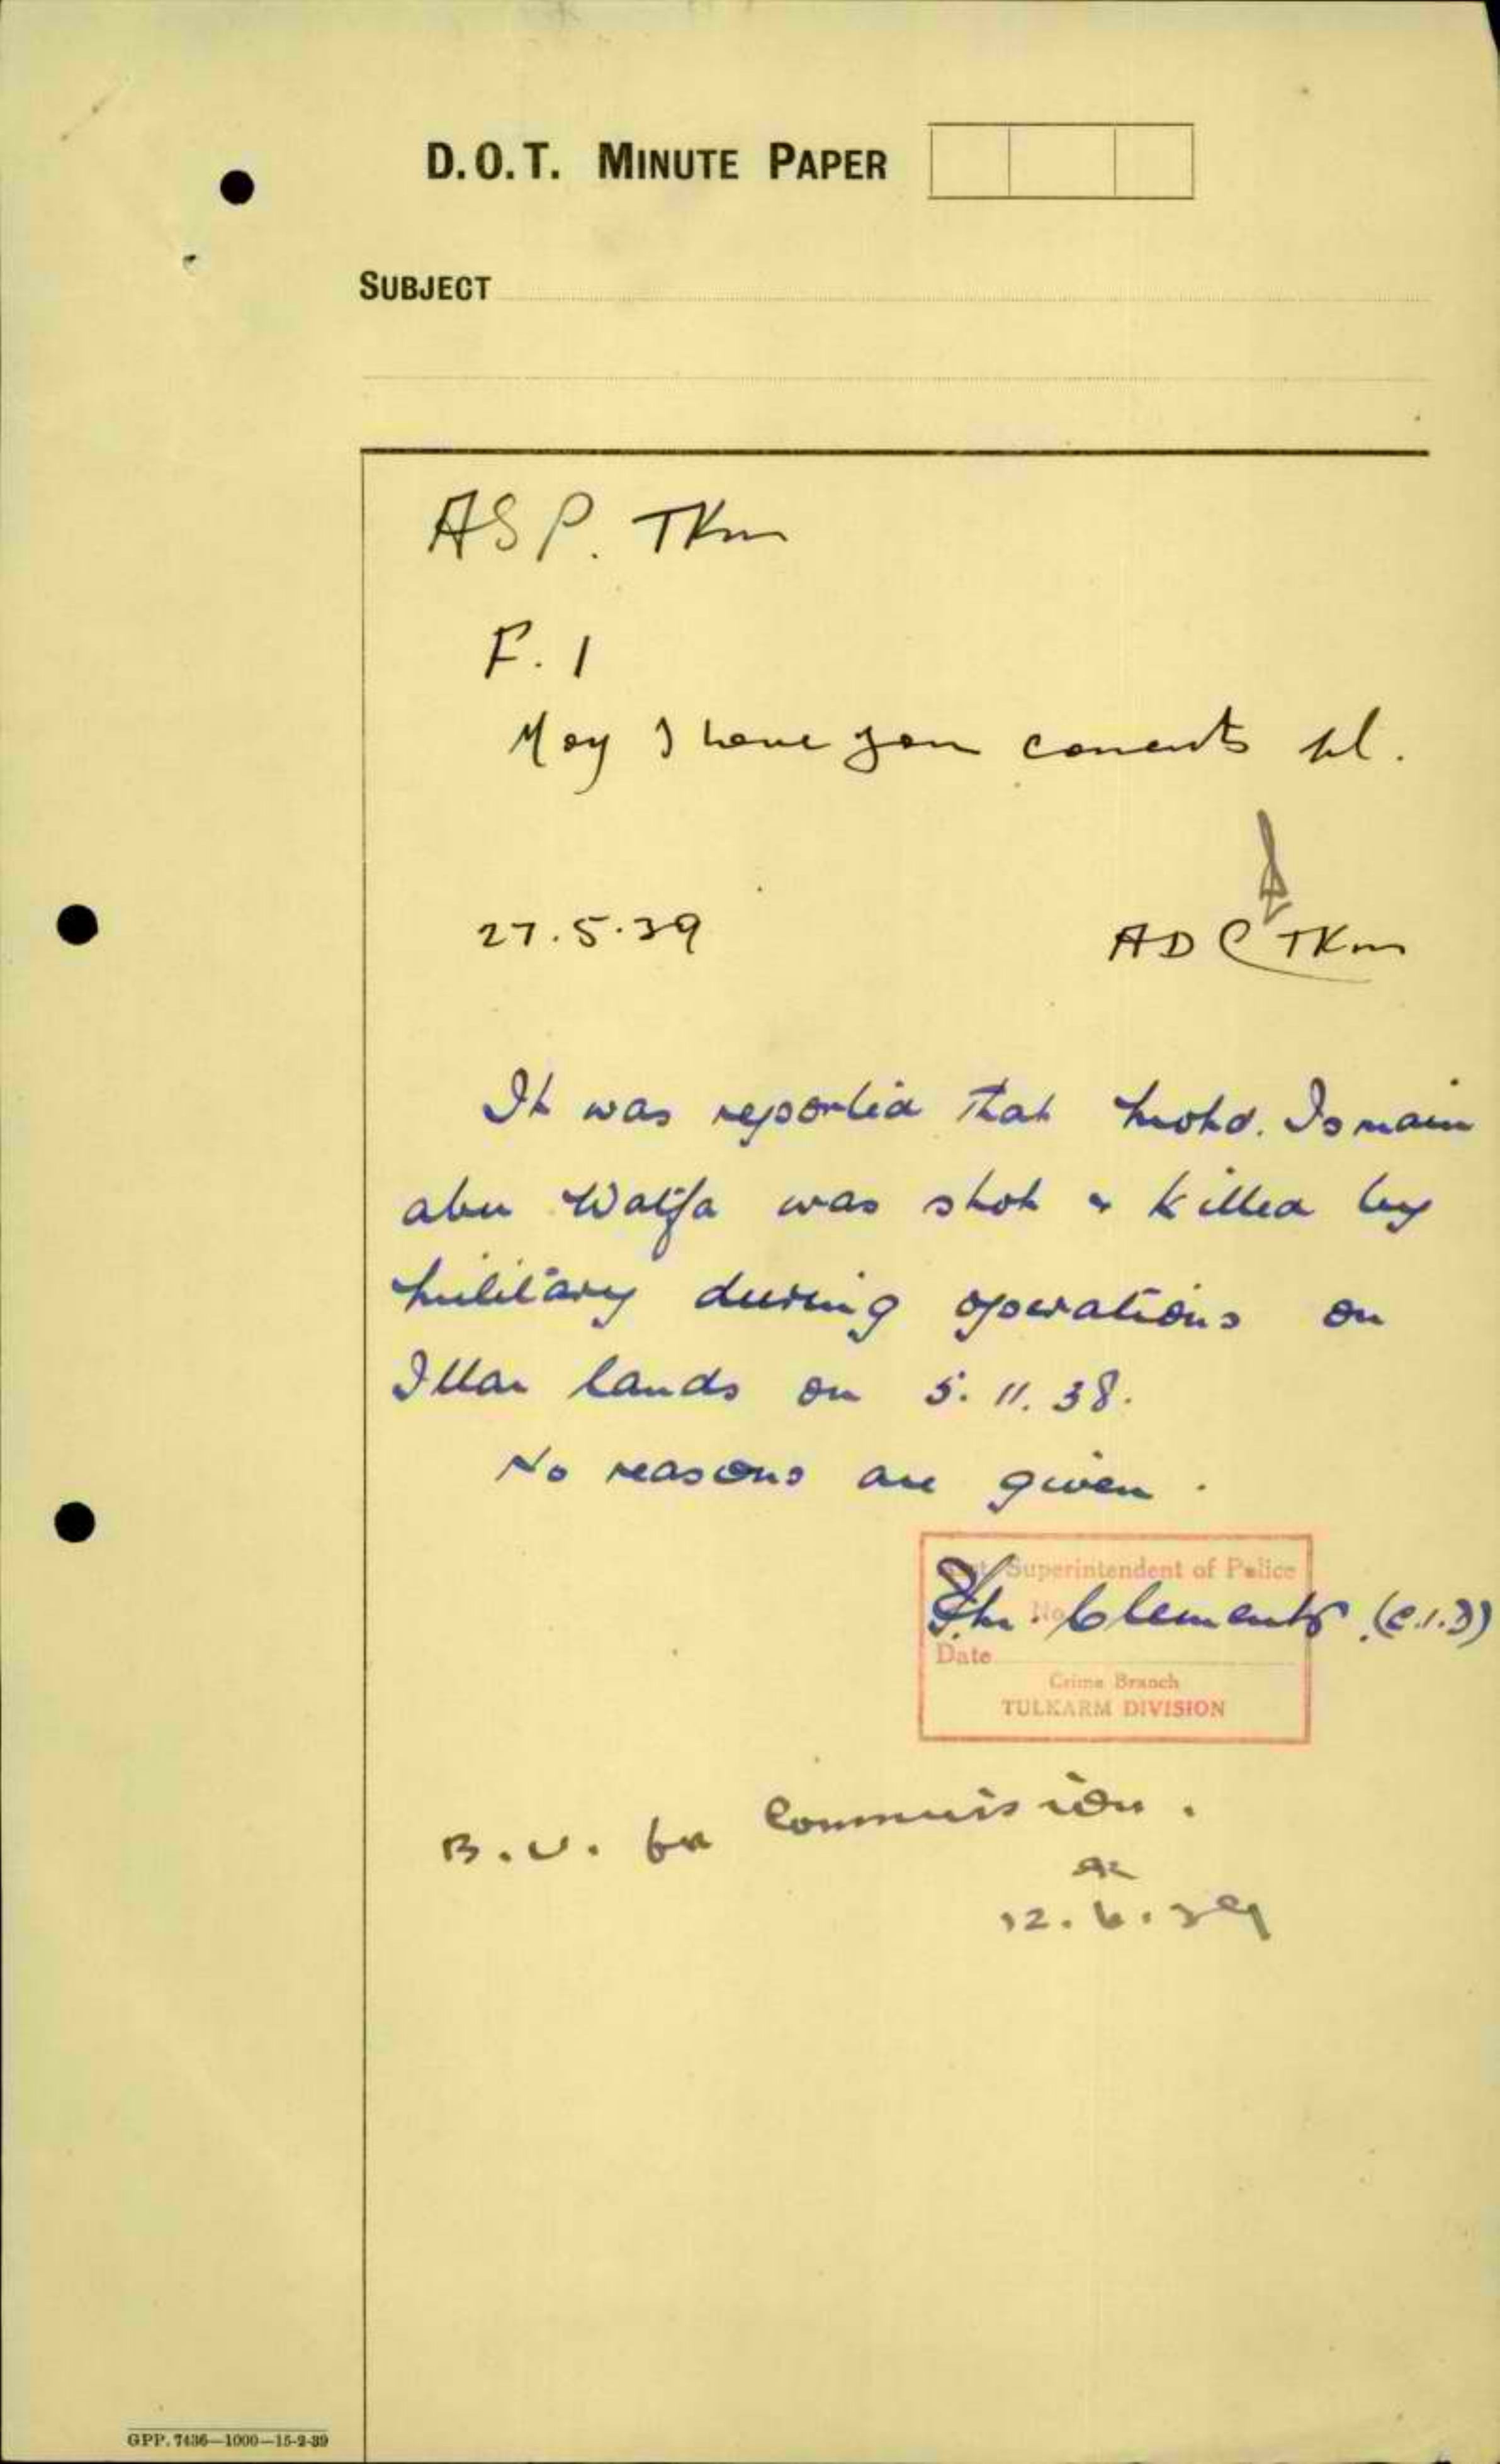 D.O.T. MINUTE PAPER
SUBJECT
ASP. TKm
F. 1
May I have your coments pl.
27.5.39
ADC TKm
It was reported that Mohd. Ismain
abu Walfa was shot & killed by
military during operations on
Illar lands on 5. 11. 38.
No reasons are given.
Superintendent of Police
No
Clements (C.I.D)
Date
Crime Branch
TULKARM DIVISION
B.U. for Commission.
12.6.39
GPP. 7436—1000—15-2-39